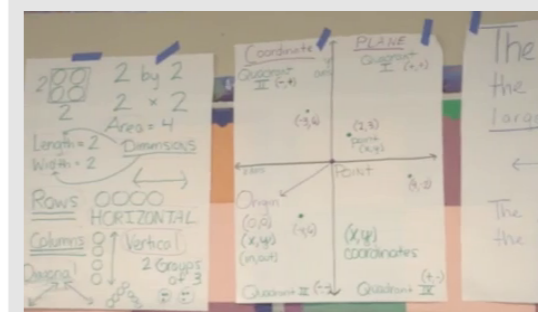 2 2 by 2
2 2 x 2
Area = 4
Length = 2 Dimensions
Width = 2
Rows
HORIZONTAL
Columns Vertical
2 Groups
of 3
Coordinate PLANE
Quadrant
II (-,+)
Quadrant
I (+,+)
(2,3)
Point
(x,y)
Point
Origin
(0,0)
(x,y)
(x,y)
coordinates
Quadrant III (-,-)
Quadrant IV (+,-)
The
the
large
The
the